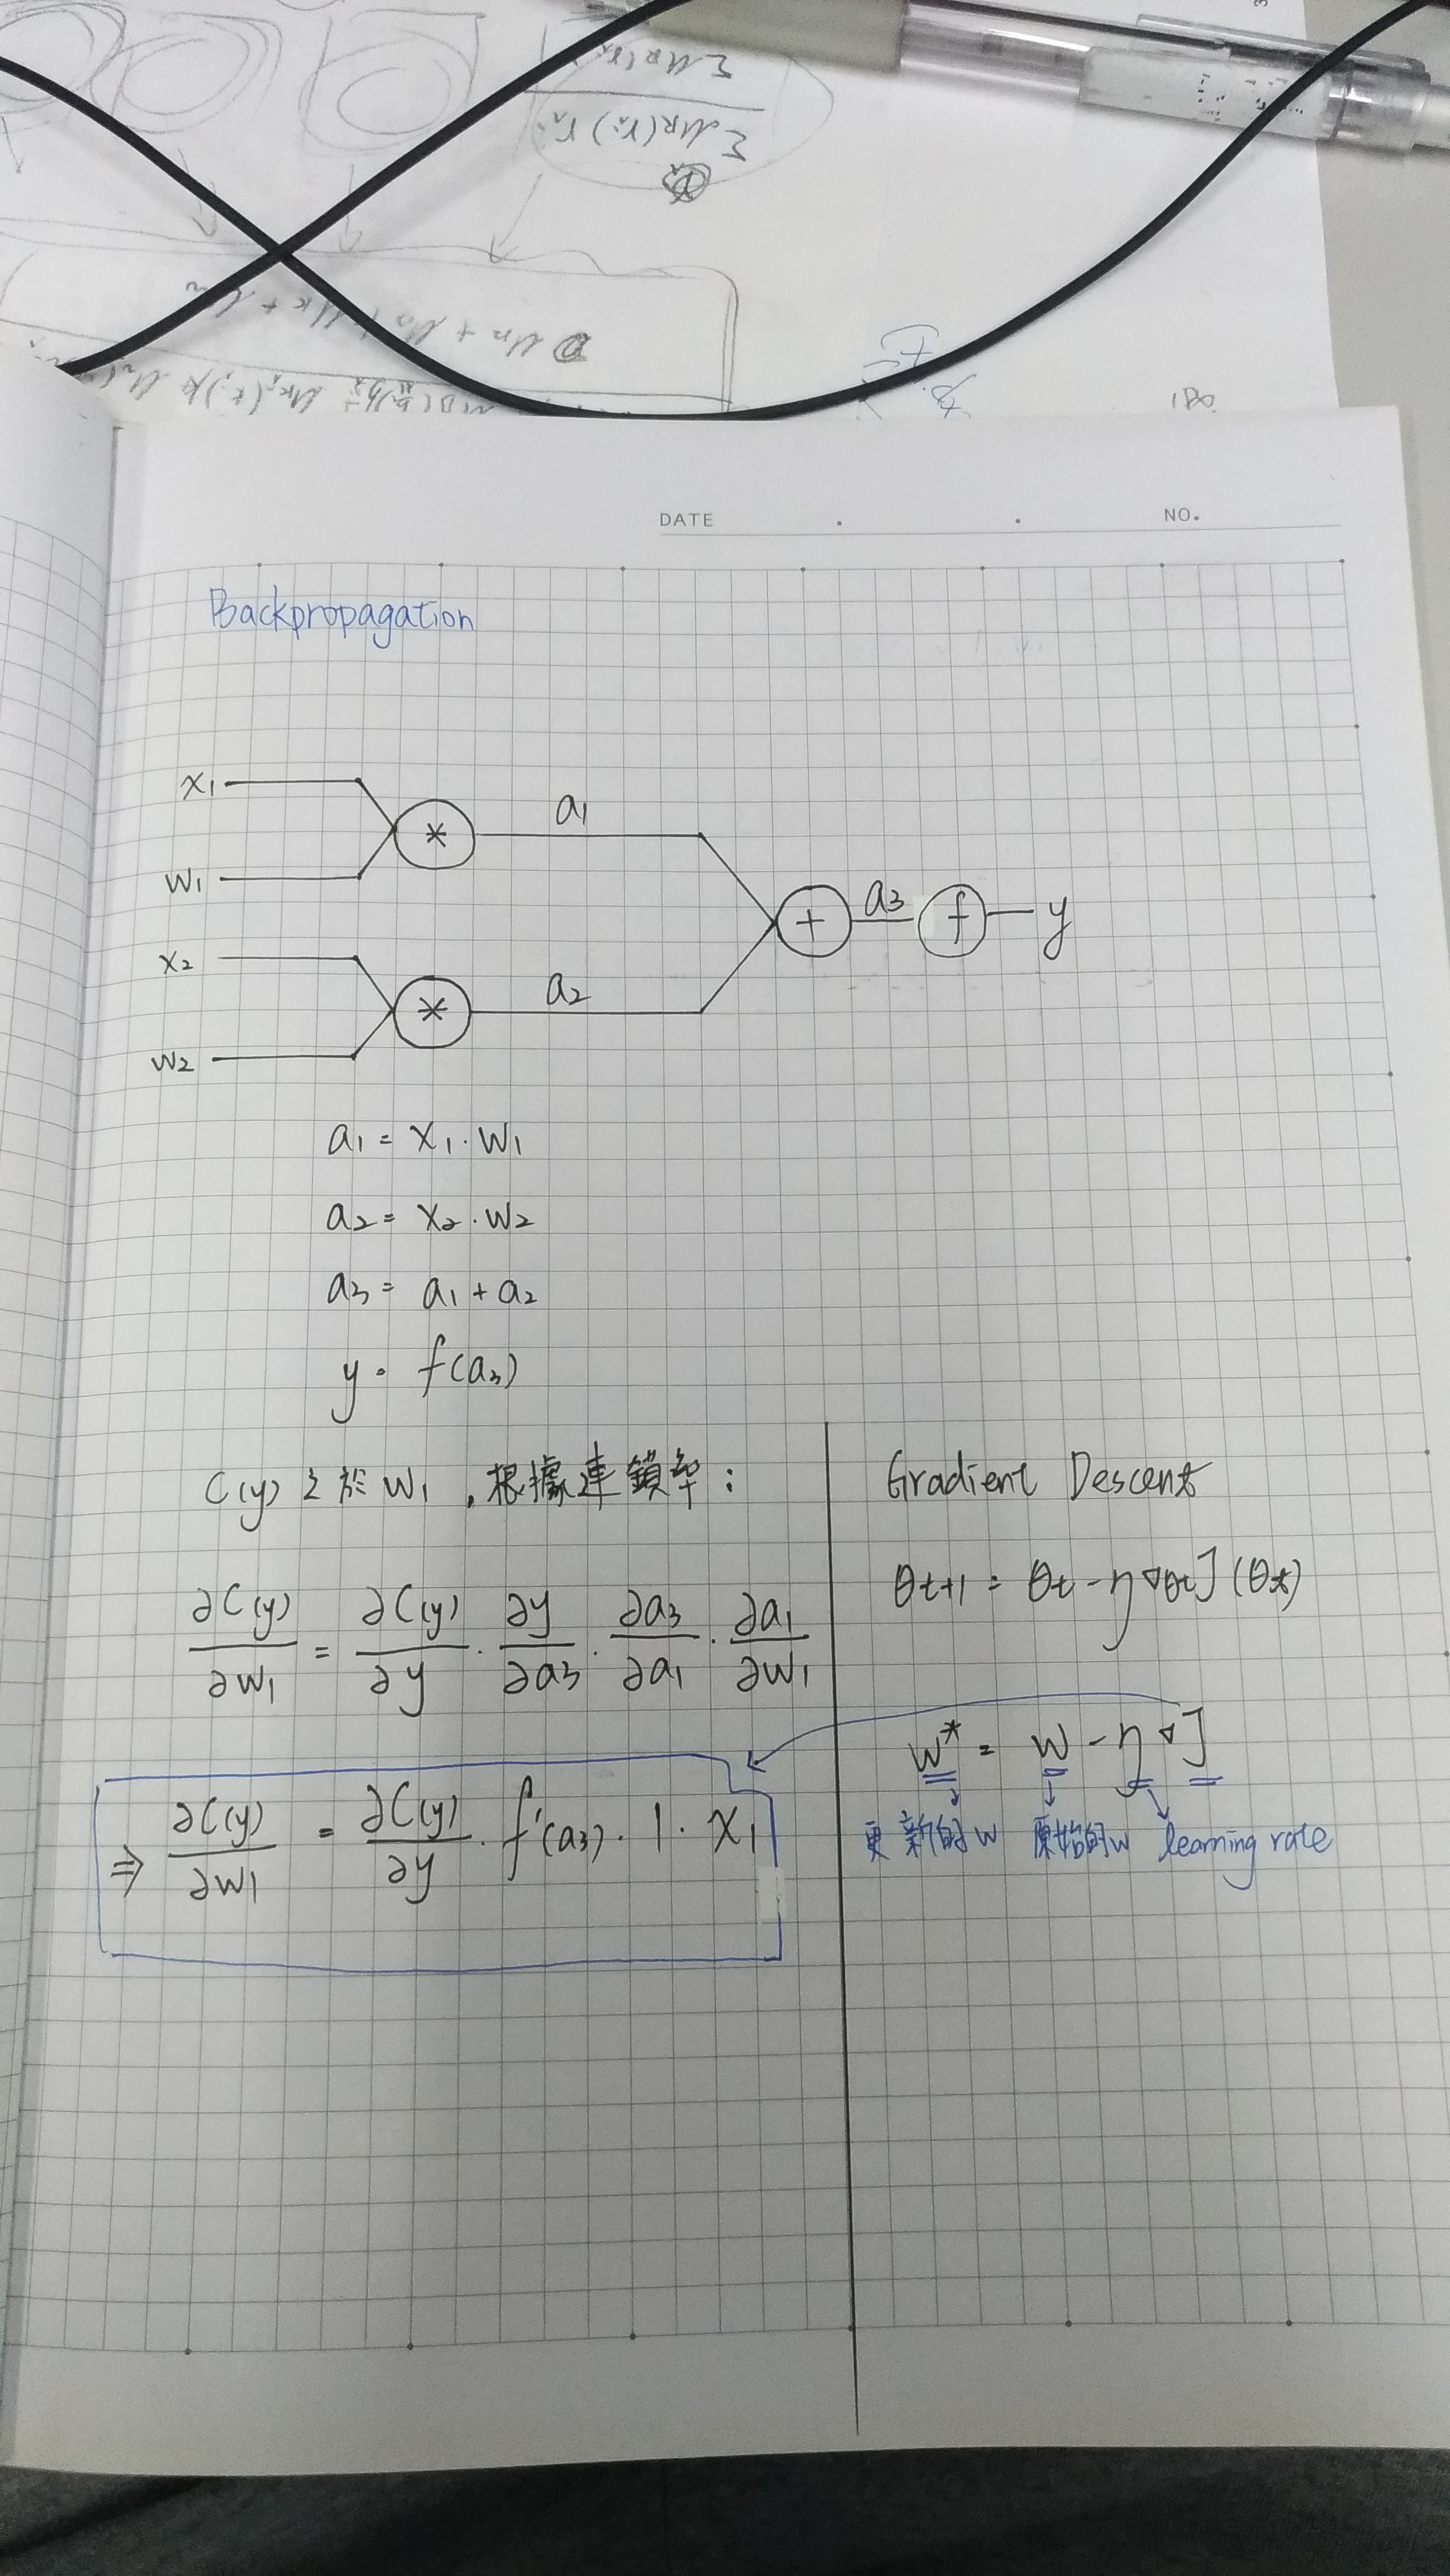 180
DATE . . NO.
Backpropagation
x1
w1
x2
w2
*
*
a1
a2
+
a3
f
y
a1 = x1 · w1
a2 = x2 · w2
a3 = a1 + a2
y = f(a3)
C(y) 之於 w1 , 根據連鎖率 :
∂C(y)/∂w1 = ∂C(y)/∂y · ∂y/∂a3 · ∂a3/∂a1 · ∂a1/∂w1
⇒ ∂C(y)/∂w1 = ∂C(y)/∂y · f'(a3) · 1 · x1
Gradient Descent
θt+1 = θt - η∇θtJ(θt)
w* = w - η∇J
更新的w 原始的w learning rate